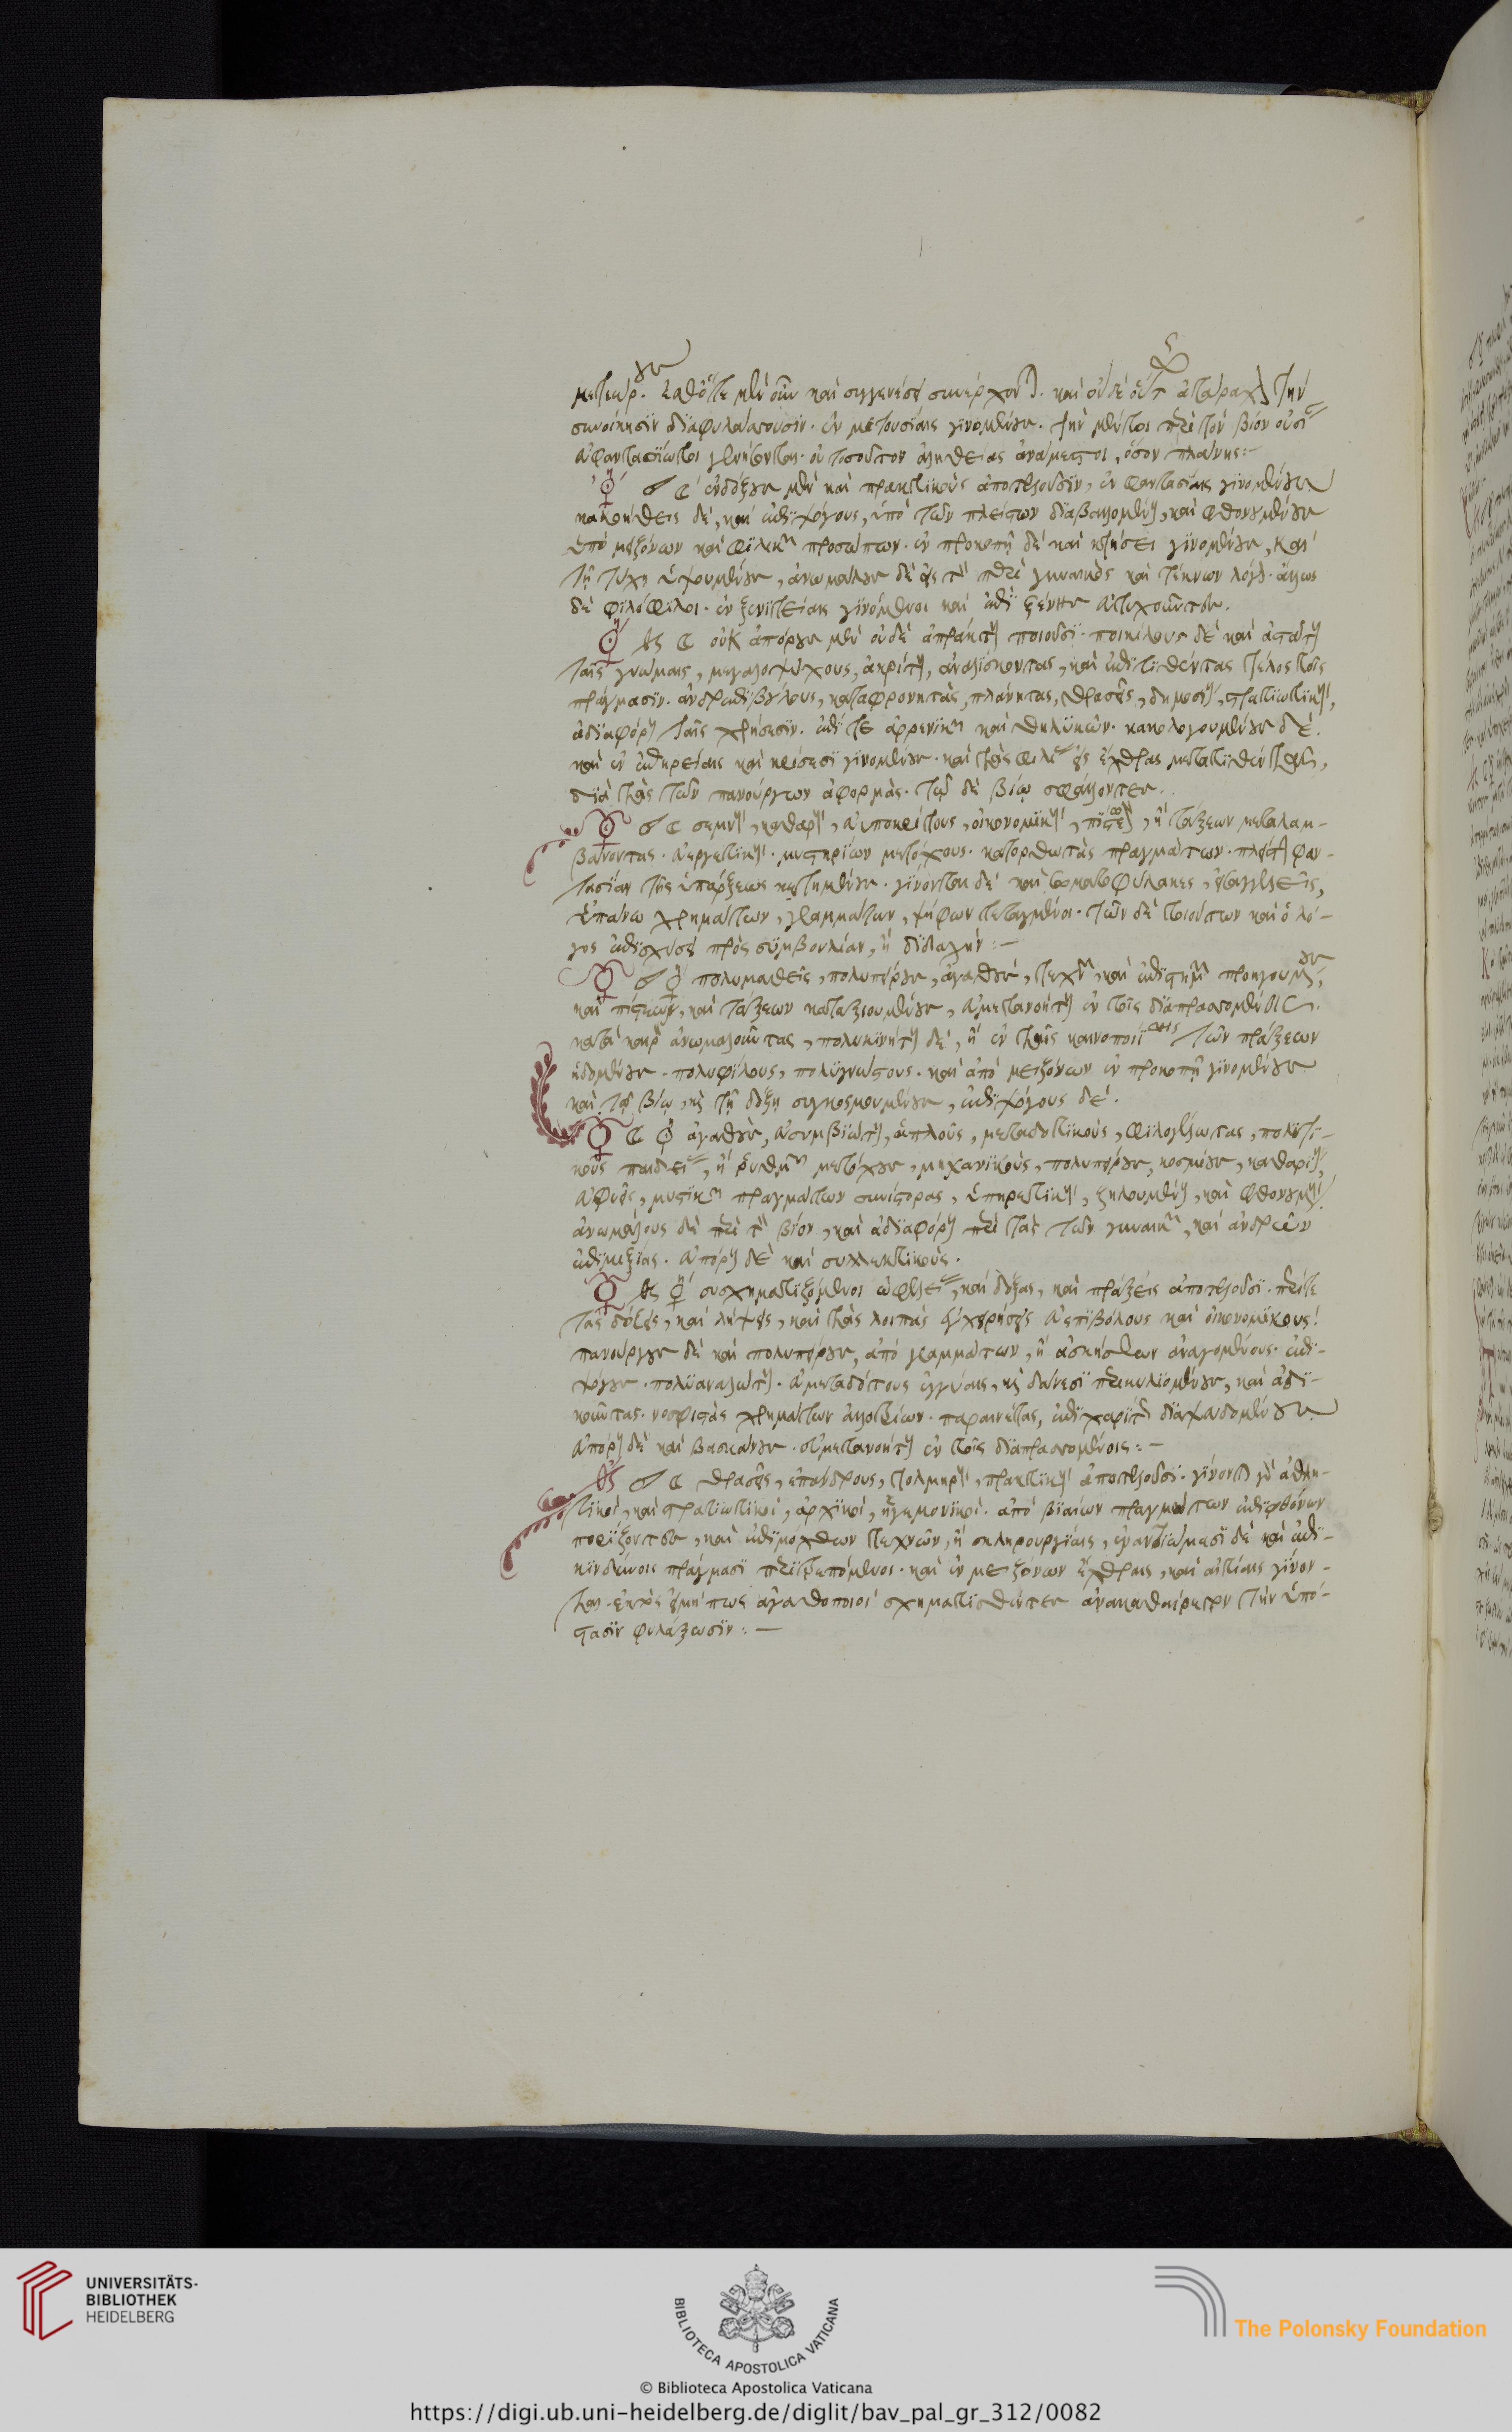 μετεώρους. ἐσθότε μὲν οὖν καὶ συγγενέσι συνέρχονται. καὶ οὐδὲ οὕτως ἀτάραχον τὴν
συνοίκησϊν διαφυλάσσουσϊν. ἐν μετουσίαις γινομένους. τὴν μέντοι περὶ τὸν βίον οὐσίαν
εὐφαντασίωτοι γενήσονται. οὐ τοσοῦτον ἀληθείας ἀνάμεστοι, ὅσον πλάνης:-
♀ ♂ ☾ ἐνδόξους μὲν καὶ πρακτικοὺς ἀποτελοῦσϊν, ἐν φαντασίαις γινομένους
κακοήθεις δὲ, καὶ ἐπιψόγους, ὑπὸ τῶν πλείστων διαβαλλομένους, καὶ φθονουμένους
ὑπὸ μειζόνων καὶ φιλικῶν προσώπων. ἐν προκοπῇ δὲ καὶ κτήσει γινομένους, καὶ
τῇ τύχῃ ὑψουμένους, ἀνωμάλους δὲ εἰς τὸν περὶ γυναικὸς καὶ τέκνων λόγον. ἄλλως
δὲ φιλόφιλοι. ἐν ξενιτείαις γινόμενοι καὶ ἐπὶ ξένης εὐτυχοῦντες.
♀ ☾ οὐκ ἀπόρους μὲν οὐδὲ ἀπράκτους ποιοῦσϊ. ποικίλους δὲ καὶ ἀστάτους
ταῖς γνώμαις, μεγαλοψύχους, ἀκρίτους, ἀναλίσκοντας, καὶ ἐπιτιθέντας τέλος τοῖς
πράγμασϊν. ἀνδρεπιβούλους, καταφρονητὰς, πλάνητας, θρασεῖς, δημοσίους, στρατιωτικοὺς,
ἀδιαφόρους ταῖς χρήσεσϊν. ἐπί τε ἀρρενικῶν καὶ θηλυκῶν. κακολογουμένους δέ.
καὶ ἐν ἐπηρείαις καὶ κρίσεσι γινομένους. καὶ τὰς φιλίας εἰς ἔχθρας μετατιθέντας,
διὰ τὰς τῶν πανούργων ἀφορμὰς. τῷ δὲ βίῳ σφάλλοντες.
♀ ♂ ☾ σεμνοὺς, καθαροὺς, εὐυποκρίτους, οἰκονομικοὺς, πίστεων, ἢ τάξεων μεταλαμ-
βάνοντας. εὐεργετικοὺς. μυστηρίων μετόχους. κατορθωτὰς πραγμάτων. πλείστην φαν-
τασίαν τῆς ὑπάρξεως κεκτημένους. γίνονται δὲ καὶ σωματοφύλακες, εἰσαγγελεῖς,
ἐπάνω χρημάτων, γραμμάτων, ψήφων τεταγμένοι. τῶν δὲ τοιούτων καὶ ὁ λό-
γος ἐπισχύσει πρὸς συμβουλίαν, ἢ διδαχήν:-
♀ ♂ πολυμαθεῖς, πολυπείρους, ἀγαθοὺς, τεχνῶν, καὶ ἐπιστημῶν προηγουμένους,
καὶ πίστεων, καὶ τάξεων καταξιουμένους, εὐμετανοήτους ἐν τοῖς διαπρασσομένοις.
κατὰ καιρὸν ἀνωμαλοῦντας, πολυκινήτους δὲ, ἢ ἐν ταῖς καινοποιΐαις τῶν πράξεων
ἡδομένους. πολυφίλους, πολυγνώστους. καὶ ἀπὸ μειζόνων ἐν προκοπῇ γινομένους
καὶ τῷ βίῳ, καὶ τῇ δόξῃ συγκοσμουμένους, ἐπιψόγους δέ.
♀ ☾ ἀγαθοὺς, εὐσυμβιώτους, ἁπλοῦς, μεταδοτικοὺς, φιλογέλωτας, πολιτι-
κοὺς παιδείας, ἢ ῥυθμῶν μετόχους, μηχανικοὺς, πολυπείρους, κοσμίους, καθαρίους,
εὐφυεῖς, μυστικῶν πραγμάτων συνίστορας, ὑπηρετικοὺς, ζηλουμένους, καὶ φθονουμένους
ἀνωμάλους δὲ περὶ τὸν βίον, καὶ ἀδιαφόρους περὶ τὰς τῶν γυναικῶν, καὶ ἀνδρῶν
ἐπιμιξίας. εὐπόρους δὲ καὶ συλλεκτικούς.
♀ συσχηματιζόμενοι ὠφελείας, καὶ δόξας, καὶ πράξεις ἀποτελοῦσϊ. περί τε
τὰς δόσεις, καὶ λήψεις, καὶ τὰς λοιπὰς ἐγχειρήσεις εὐεπιβόλους καὶ οἰκονομικοὺς
πανούργους δὲ καὶ πολυπείρους, ἀπὸ γραμμάτων, ἢ ἀσκήσεων ἀναγομένους. ἐπι-
ψόγους. πολυαναλώτους. εὐμεταδότους ἐγγύαις, καὶ δάνεσι περικυλιομένους, καὶ ἀδι-
κοῦντας. νοσφιστὰς χρημάτων ἀλλοτρίων. παραινέτας, ἐπιχαρίτους διαψευδομένους
εὐπόρους δὲ καὶ βασκάνους. εὐμετανοήτους ἐν τοῖς διαπρασσομένοις:-
♂ ☾ θρασεῖς, ἐπάνδρους, τολμηροὺς, πρακτικοὺς ἀποτελοῦσϊ. γίνονται γὰρ ἀθλη-
τικοί, καὶ στρατιωτικοί, ἀρχικοί, ἡγεμονικοί. ἀπὸ βιαίων πραγμάτων ἐπιφθόνων
πορίζοντες, καὶ ἐπιμόχθων τεχνῶν, ἢ σκληρουργίαις, ἐναντιώμασϊ δὲ καὶ ἐπι-
κινδύνοις πράγμασϊ περιτρεπόμενοι. καὶ ἐν μειζόνων ἔχθραις, καὶ αἰτίαις γίνον-
ται. ἐκτὸς εἰ μή πως ἀγαθοποιοὶ σχηματισθέντες ἀνακαθαίρετον τὴν ὑπό-
στασϊν φυλάξωσϊν:-
UNIVERSITÄTS-
BIBLIOTHEK
HEIDELBERG
BIBLIOTECA APOSTOLICA VATICANA
The Polonsky Foundation
© Biblioteca Apostolica Vaticana
https://digi.ub.uni-heidelberg.de/diglit/bav_pal_gr_312/0082